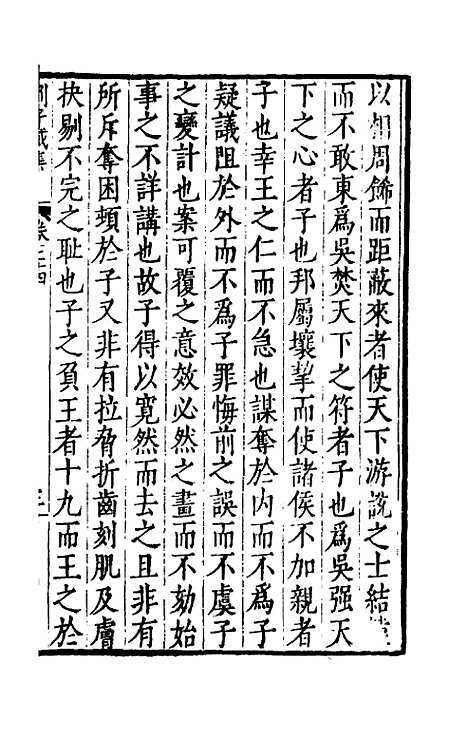 以相周飾而距蔽來者使天下游說之士結
而不敢東爲吳焚天下之符者子也爲吳强天
下之心者子也邦屬壤挈而使諸侯不加親者
子也幸王之仁而不急也謀奪於内而不爲子
疑議阻於外而不爲子罪悔前之誤而不虞子
之變計也案可覆之意效必然之畫而不劾始
事之不詳講也故子得以寛然而去之且非有
所斥奪困頓於子又非有拉脅折齒刻肌及膚
抉剔不完之耻也子之負王者十九而王之於
子威集 卷之四